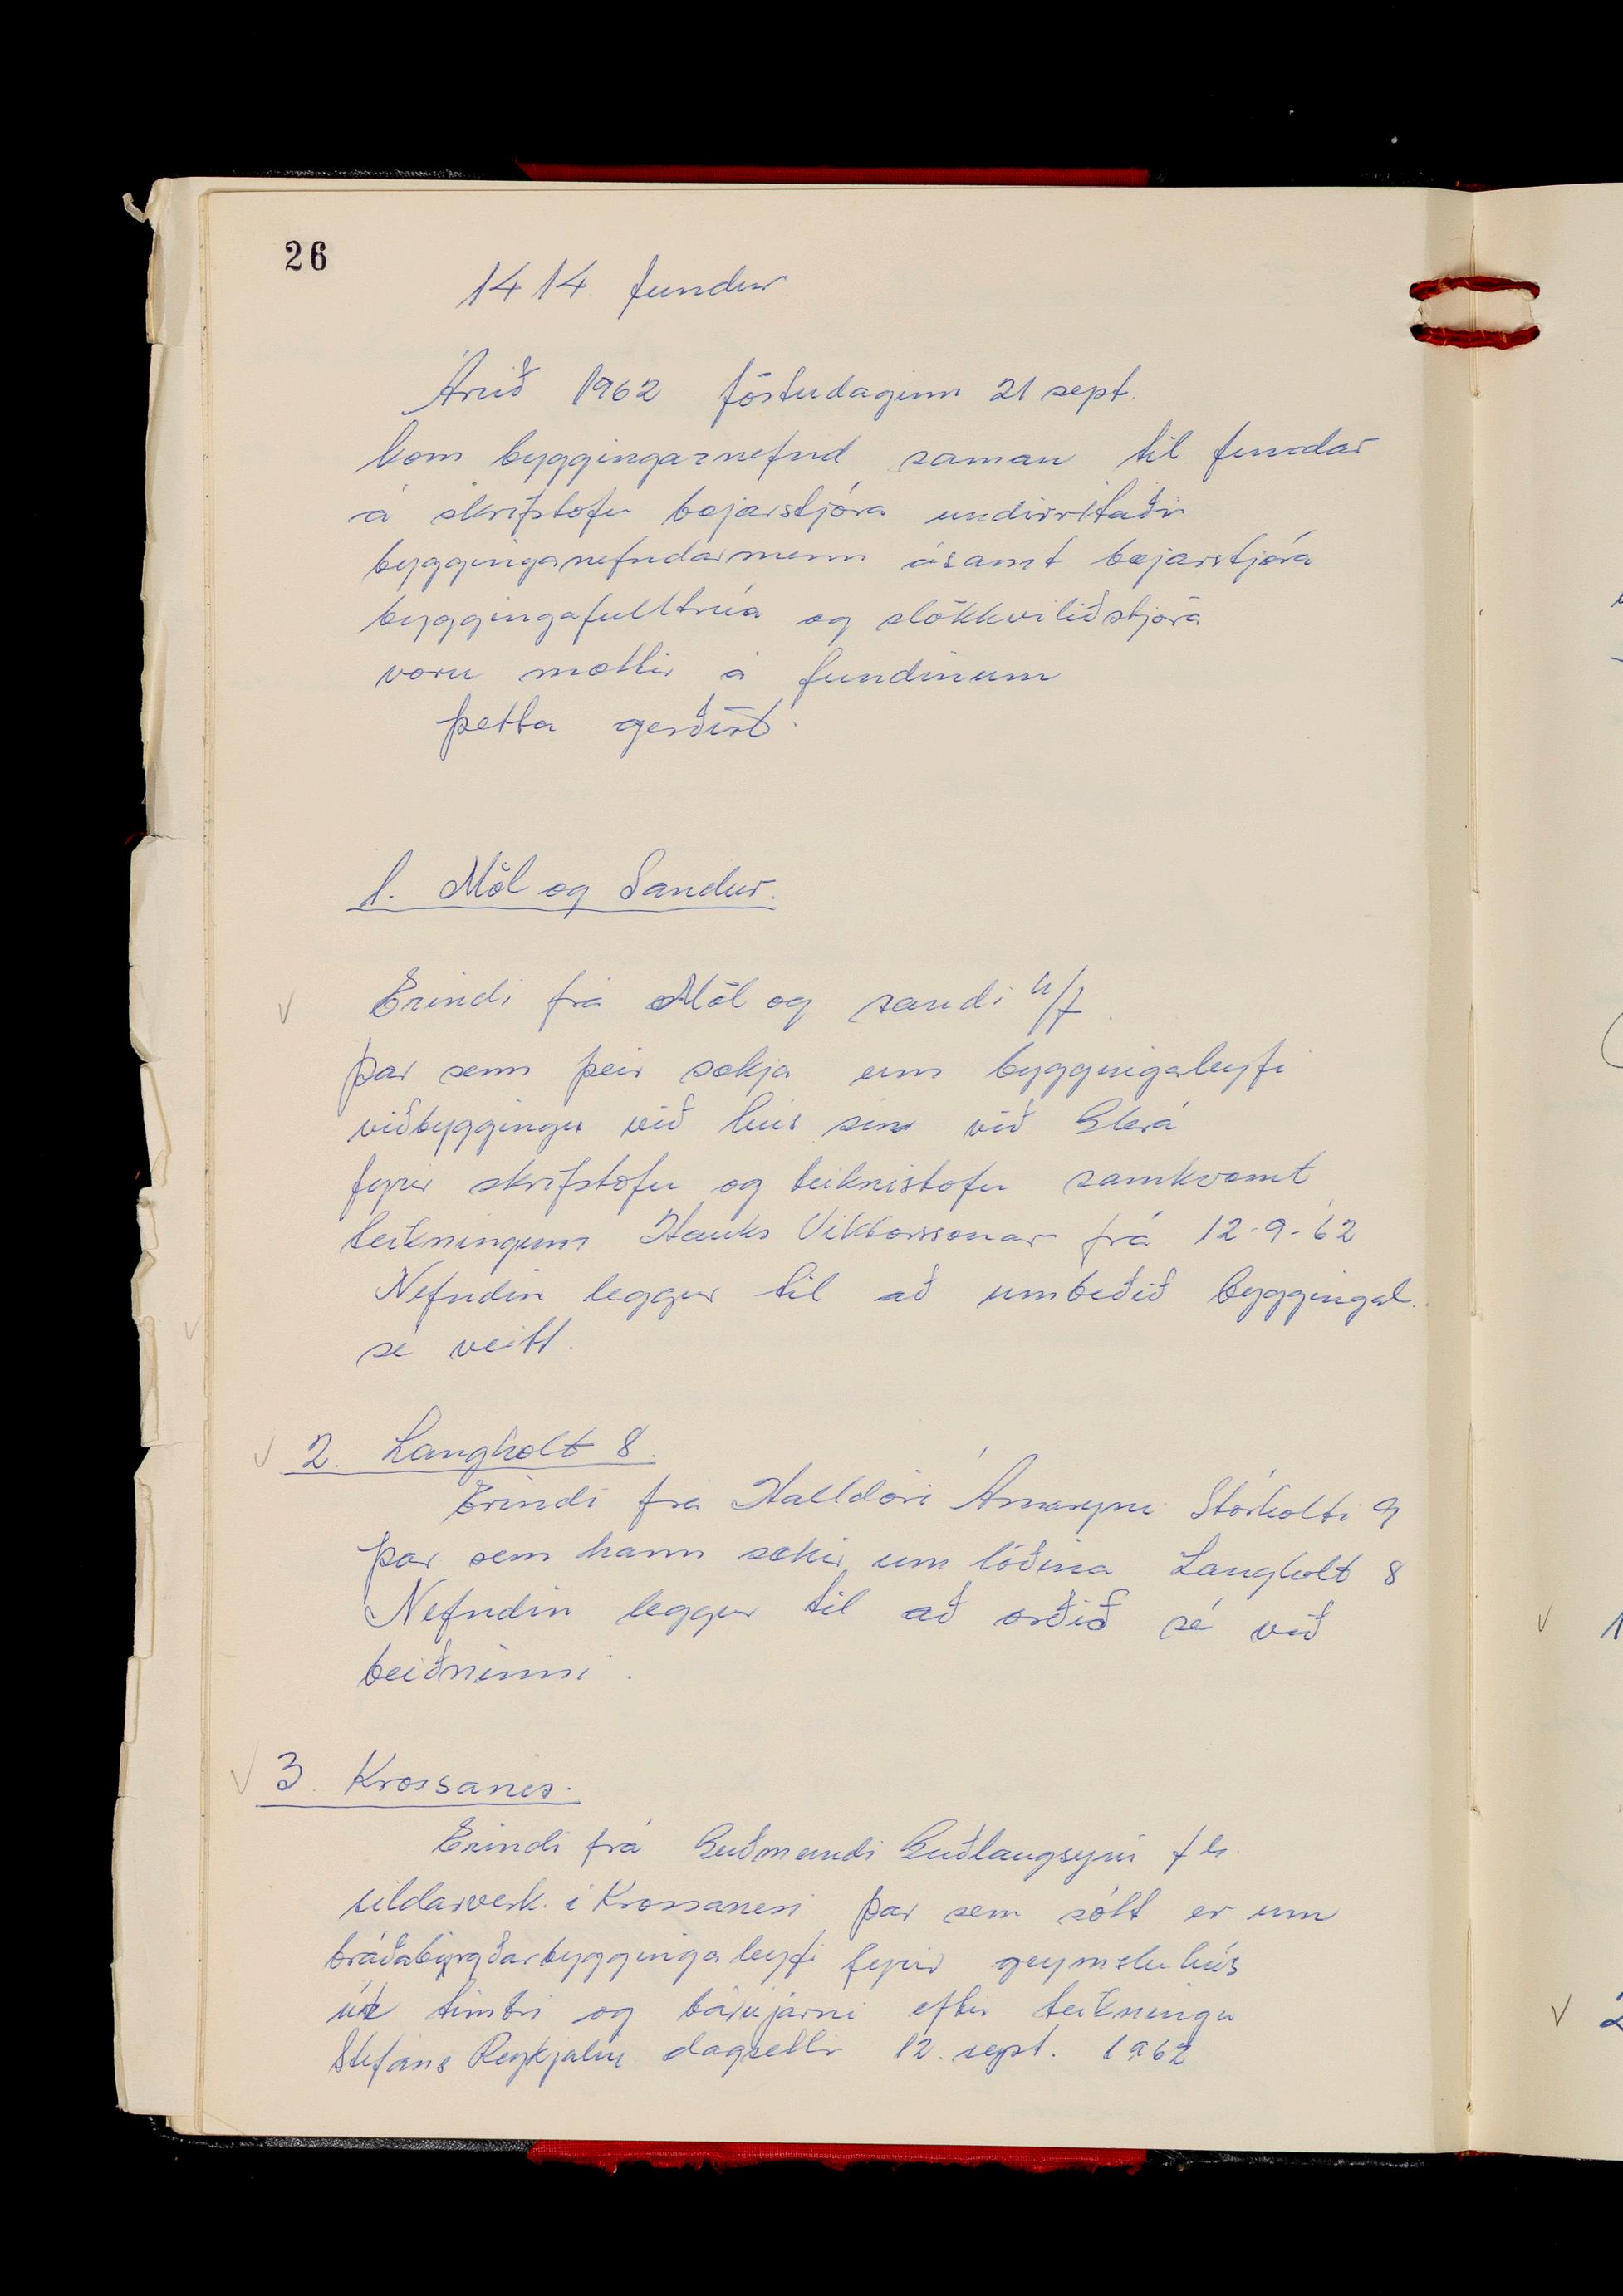 26
1414. fundur
Árið 1962 föstudaginn 21 sept.
kom byggingarnefnd saman til fundar
á skrifstofu bæjarstjóra undirritaðir
bygginganefndarmenn ásamt bæjarstjóra
byggingafulltrúa og slökkviliðstjóra
voru mættir á fundinum
þetta gerðist.
1. Möl og Sandur.
Erindi frá Möl og sandi h/f
þar sem þeir sækja um byggingaleyfi
viðbyggingu við hús sín við Glerá
fyrir skrifstofu og teiknistofu samkvæmt
teikningum Hauks Viktorssonar frá 12-9-'62
Nefndin leggur til að umbeðið byggingal.
sé veitt.
2. Langholt 8.
Erindi frá Halldóri Árnasyni Stórholti 9
þar sem hann sækir um lóðina Langholt 8
Nefndin leggur til að orðið sé við
beiðninni.
3. Krossanes.
Erindi frá Guðmundi Guðlaugsyni f h.
síldarverk. í Krossanesi þar sem sótt er um
bráðabyrgðarbyggingaleyfi fyrir geymsluhús
úr timbri og bárujárni eftir teikningu
Stefáns Reykjalín dagsettri 12. sept. 1962